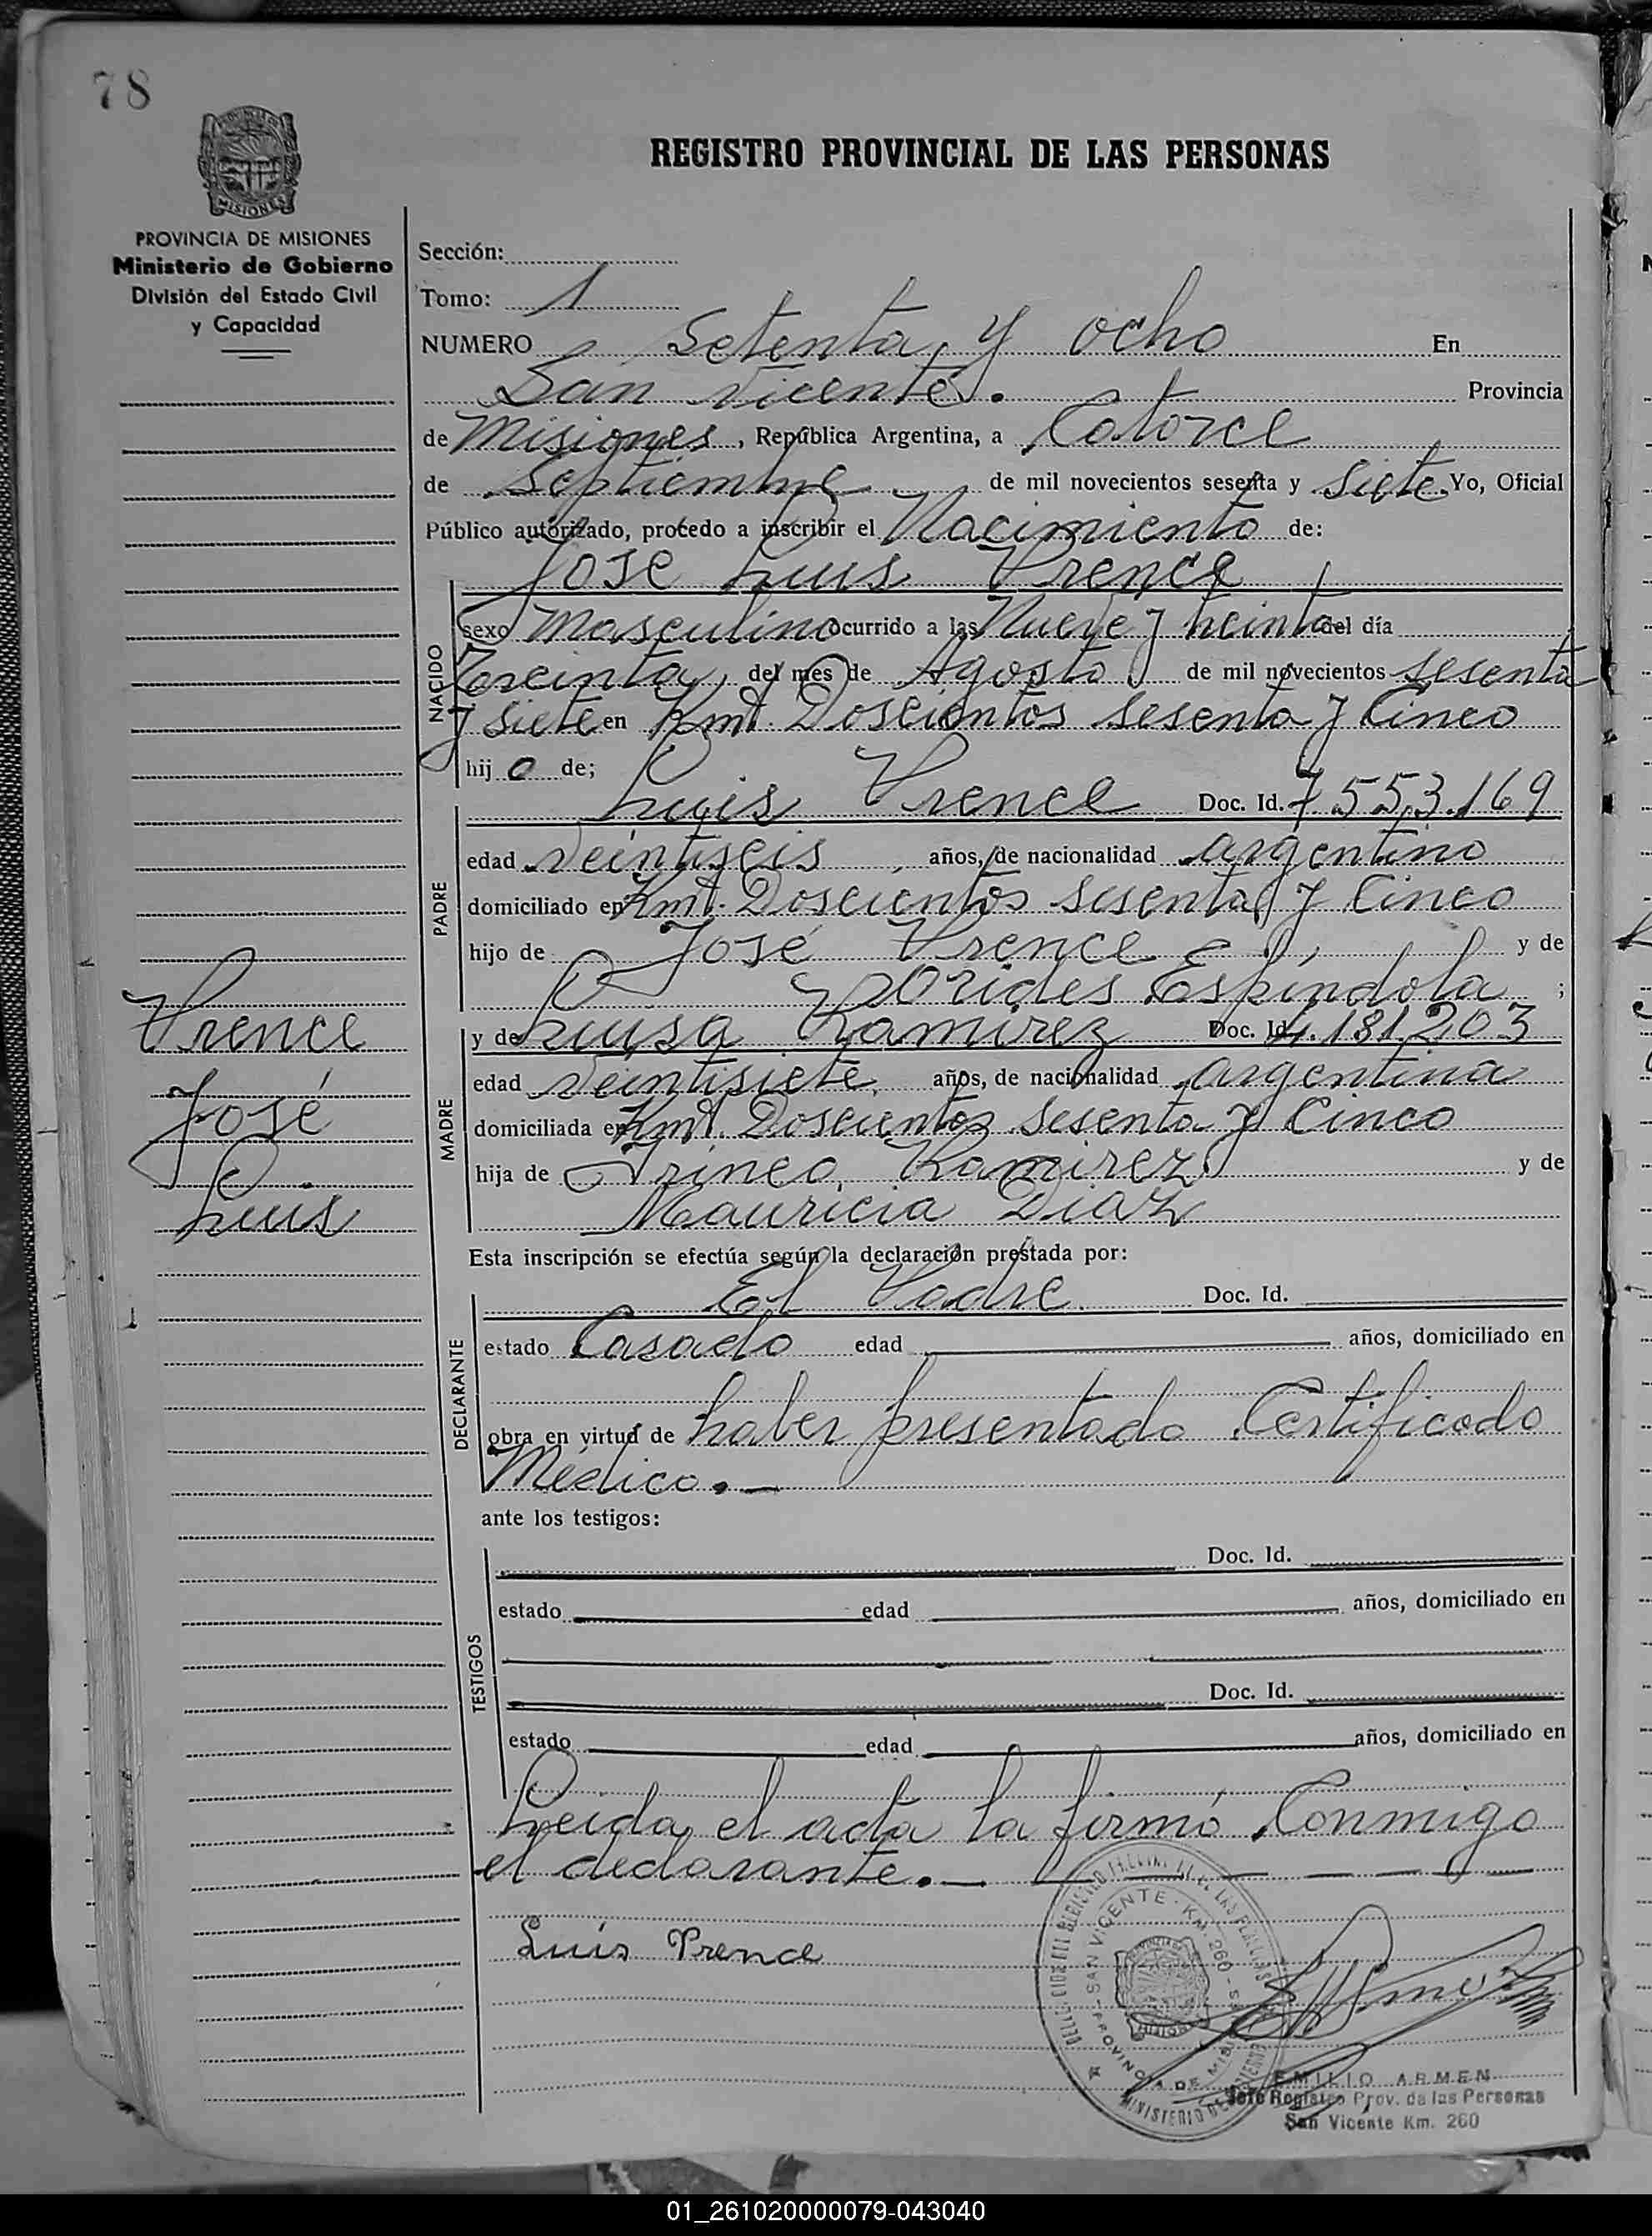 78
MISIONES
PROVINCIA DE MISIONES
Ministerio de Gobierno
División del Estado Civil
y Capacidad
REGISTRO PROVINCIAL DE LAS PERSONAS
Sección:
Tomo: 1
NUMERO Setenta y ocho En
San Vicente. Provincia
de Misiones, República Argentina, a Catorce
de Septiembre de mil novecientos sesenta y siete Yo, Oficial
Público autorizado, procedo a inscribir el Nacimiento de:
José Luis Prence
NACIDO
sexo Masculino ocurrido a las Nueve y treinta del día
Treinta del mes de Agosto de mil novecientos sesenta
y siete en Kmt. Doscientos sesenta y Cinco
hij o de;
Luis Prence Doc. Id. 7.553.169
PADRE
edad veintiseis años, de nacionalidad argentino
domiciliado en Kmt. Doscientos sesenta y Cinco
hijo de José Prence y de
Espíndola ;
Prence
José
Luis
y de Luisa Ramirez Doc. Id. 4.181.203
MADRE
edad veintisiete años, de nacionalidad argentina
domiciliada en Kmt. Doscientos sesenta y Cinco
hija de Irineo Ramirez y de
Mauricia Diaz
Esta inscripción se efectúa según la declaración prestada por:
El Padre Doc. Id.
DECLARANTE
estado Casado edad años, domiciliado en
obra en virtud de haber presentado Certificado
Médico.—
ante los testigos:
TESTIGOS
Doc. Id.
estado edad años, domiciliado en
Doc. Id.
estado edad años, domiciliado en
Leida el acta la firmó Conmigo
el declarante.—
Luis Prence
SAN VICENTE - KM. 260
PROVINCIA DE MISIONES
EMILIO ARMEN
Jefe Registro Prov. de las Personas
San Vicente Km. 260
01_261020000079-043040